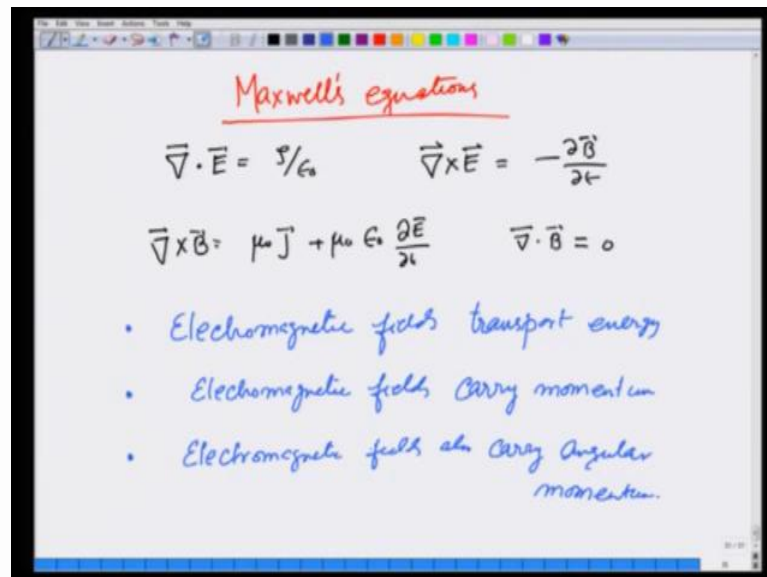 File Edit View Insert Actions Tools Help
Maxwell's equations
∇⃗·E⃗ = ρ/ε₀    ∇⃗×E⃗ = −∂B⃗/∂t
∇⃗×B⃗ = μ₀J⃗ + μ₀ε₀ ∂E⃗/∂t    ∇⃗·B⃗ = 0
• Electromagnetic fields transport energy
• Electromagnetic fields carry momentum
• Electromagnetic fields also carry angular
momentum.